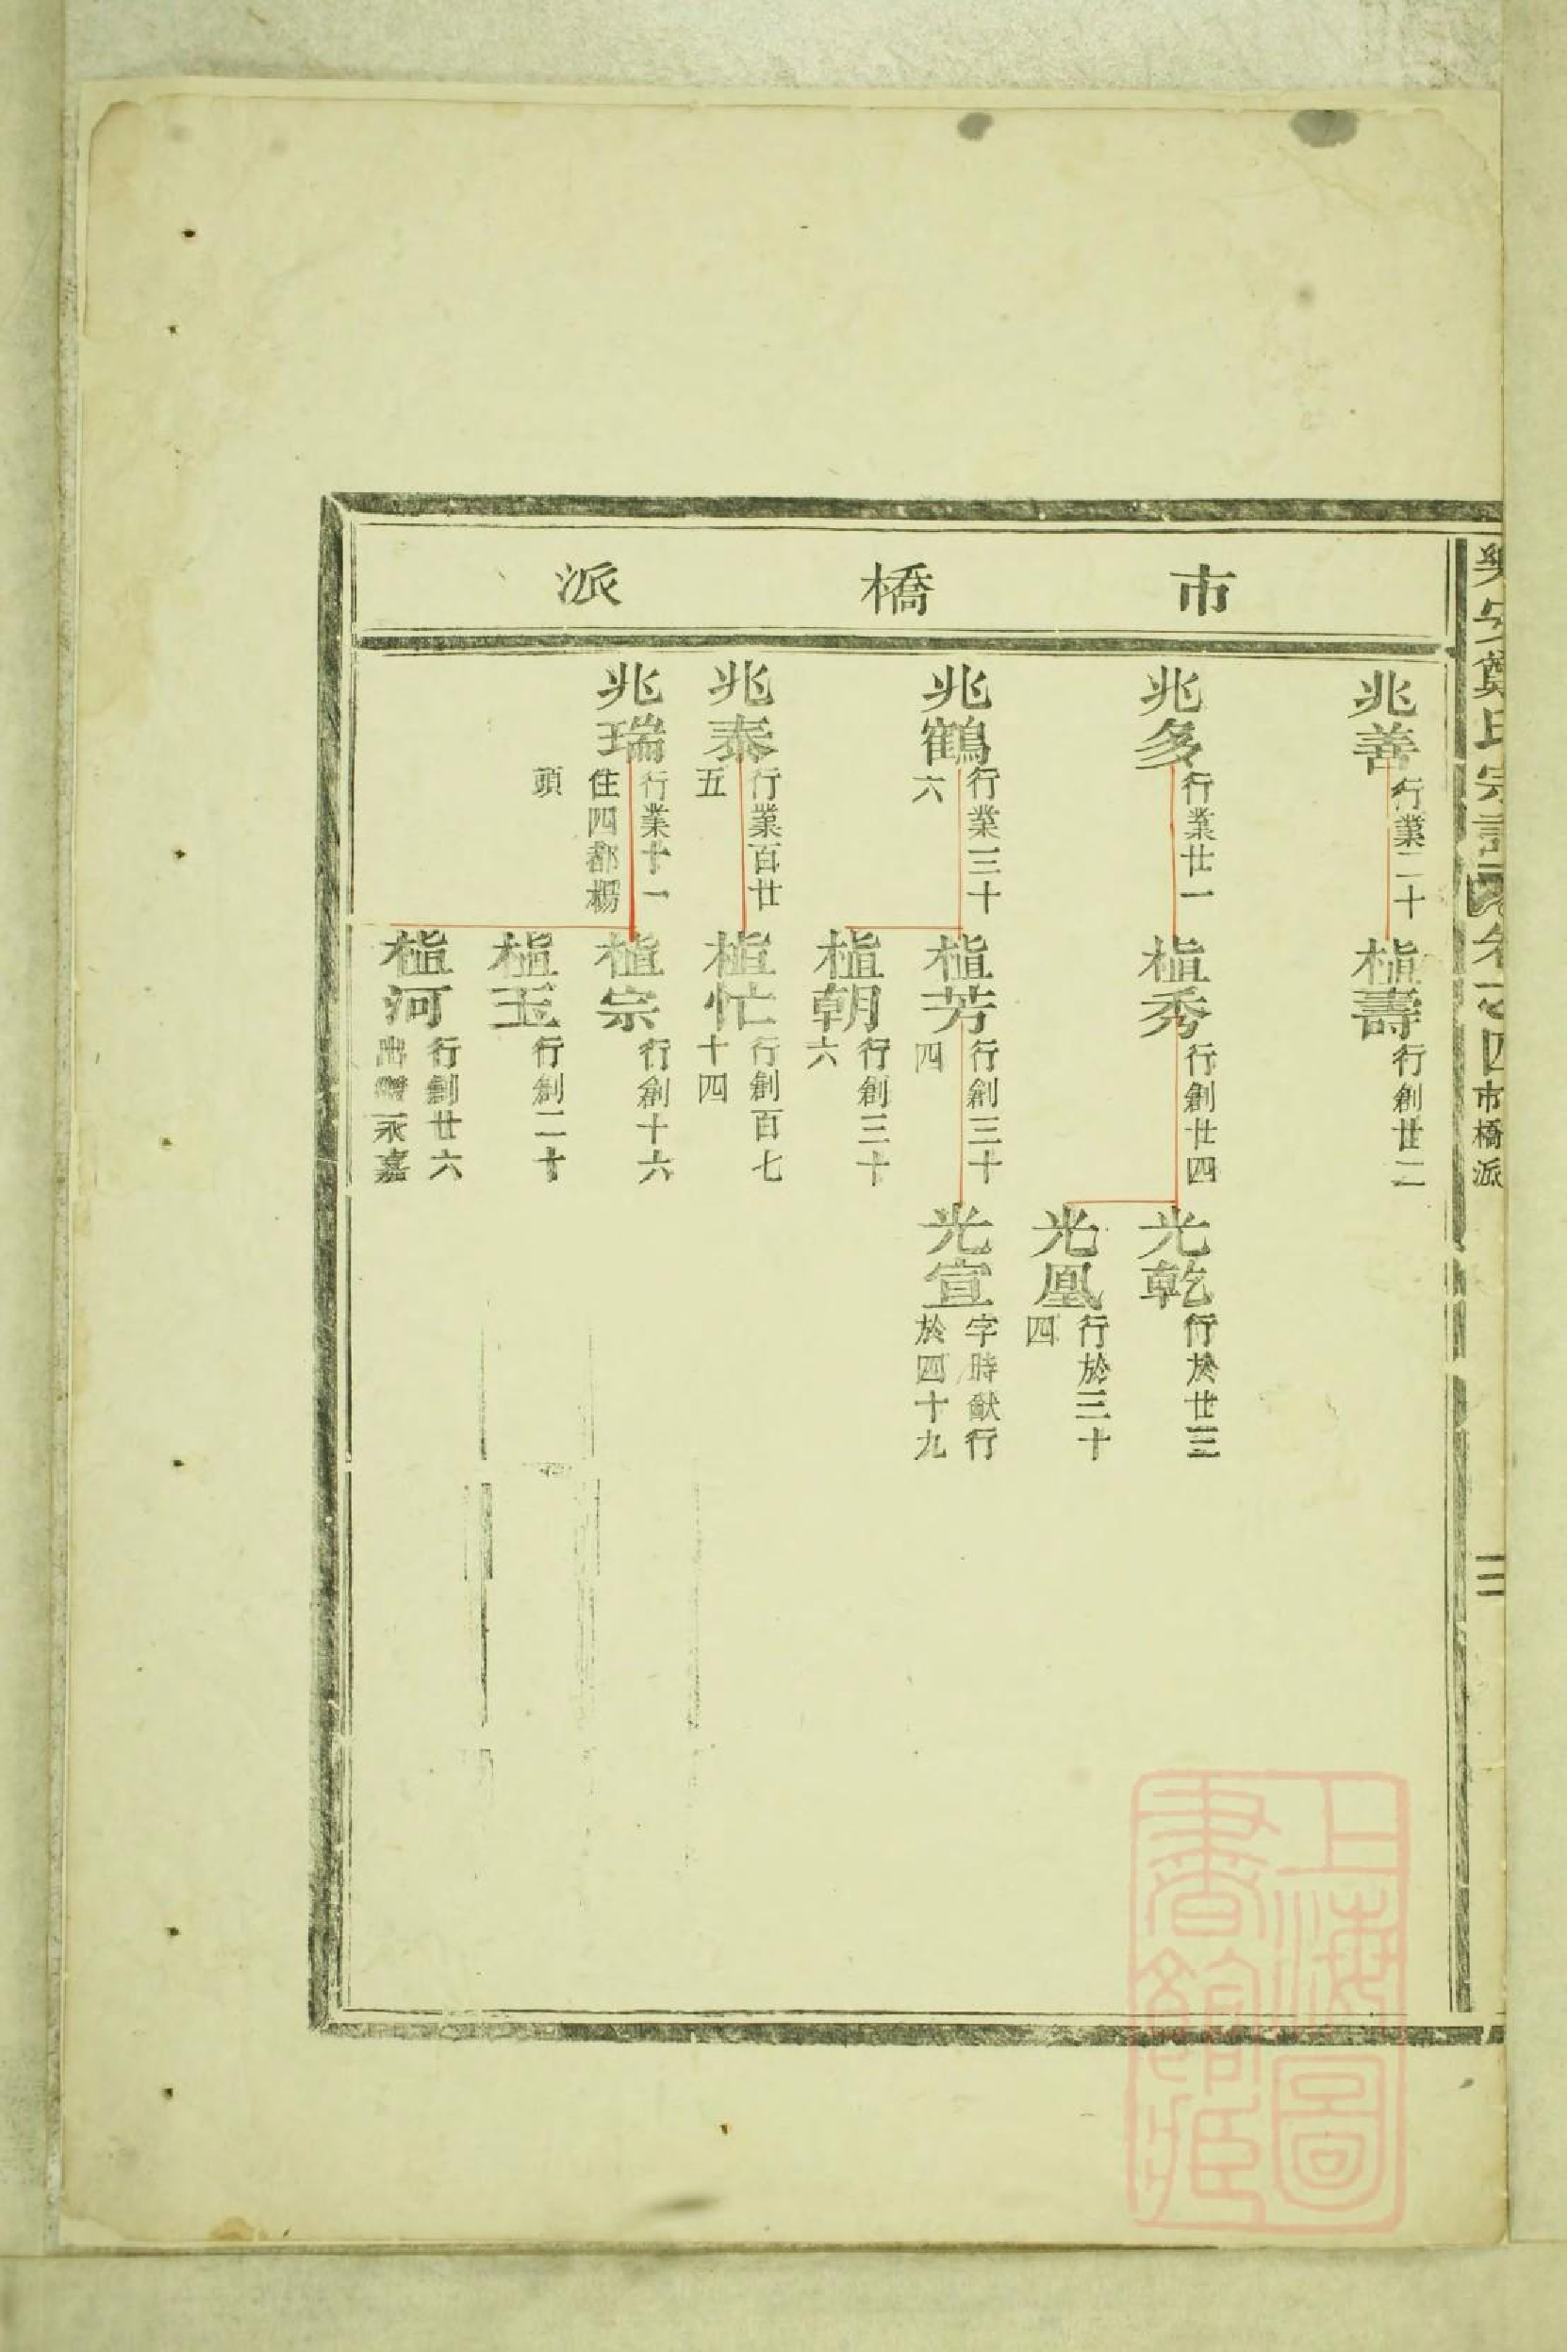 市橋派
兆善
行業二十
植壽
行創廿二
兆多
行業廿一
植秀
行創廿四
光乾
行於廿三
光凰
行於三十
四
兆鶴
行業三十
六
植芳
行創三十
四
光宣
字時猷行
於四十九
植朝
行創三十
六
兆泰
行業百廿
五
植忙
行創百七
十四
兆瑞
行業十一
住四都楊
頭
植宗
行創十六
植玉
行創二十
植河
行創廿六
出贅永嘉
鄭氏宗譜
卷之四市橋派
上海圖
書館藏